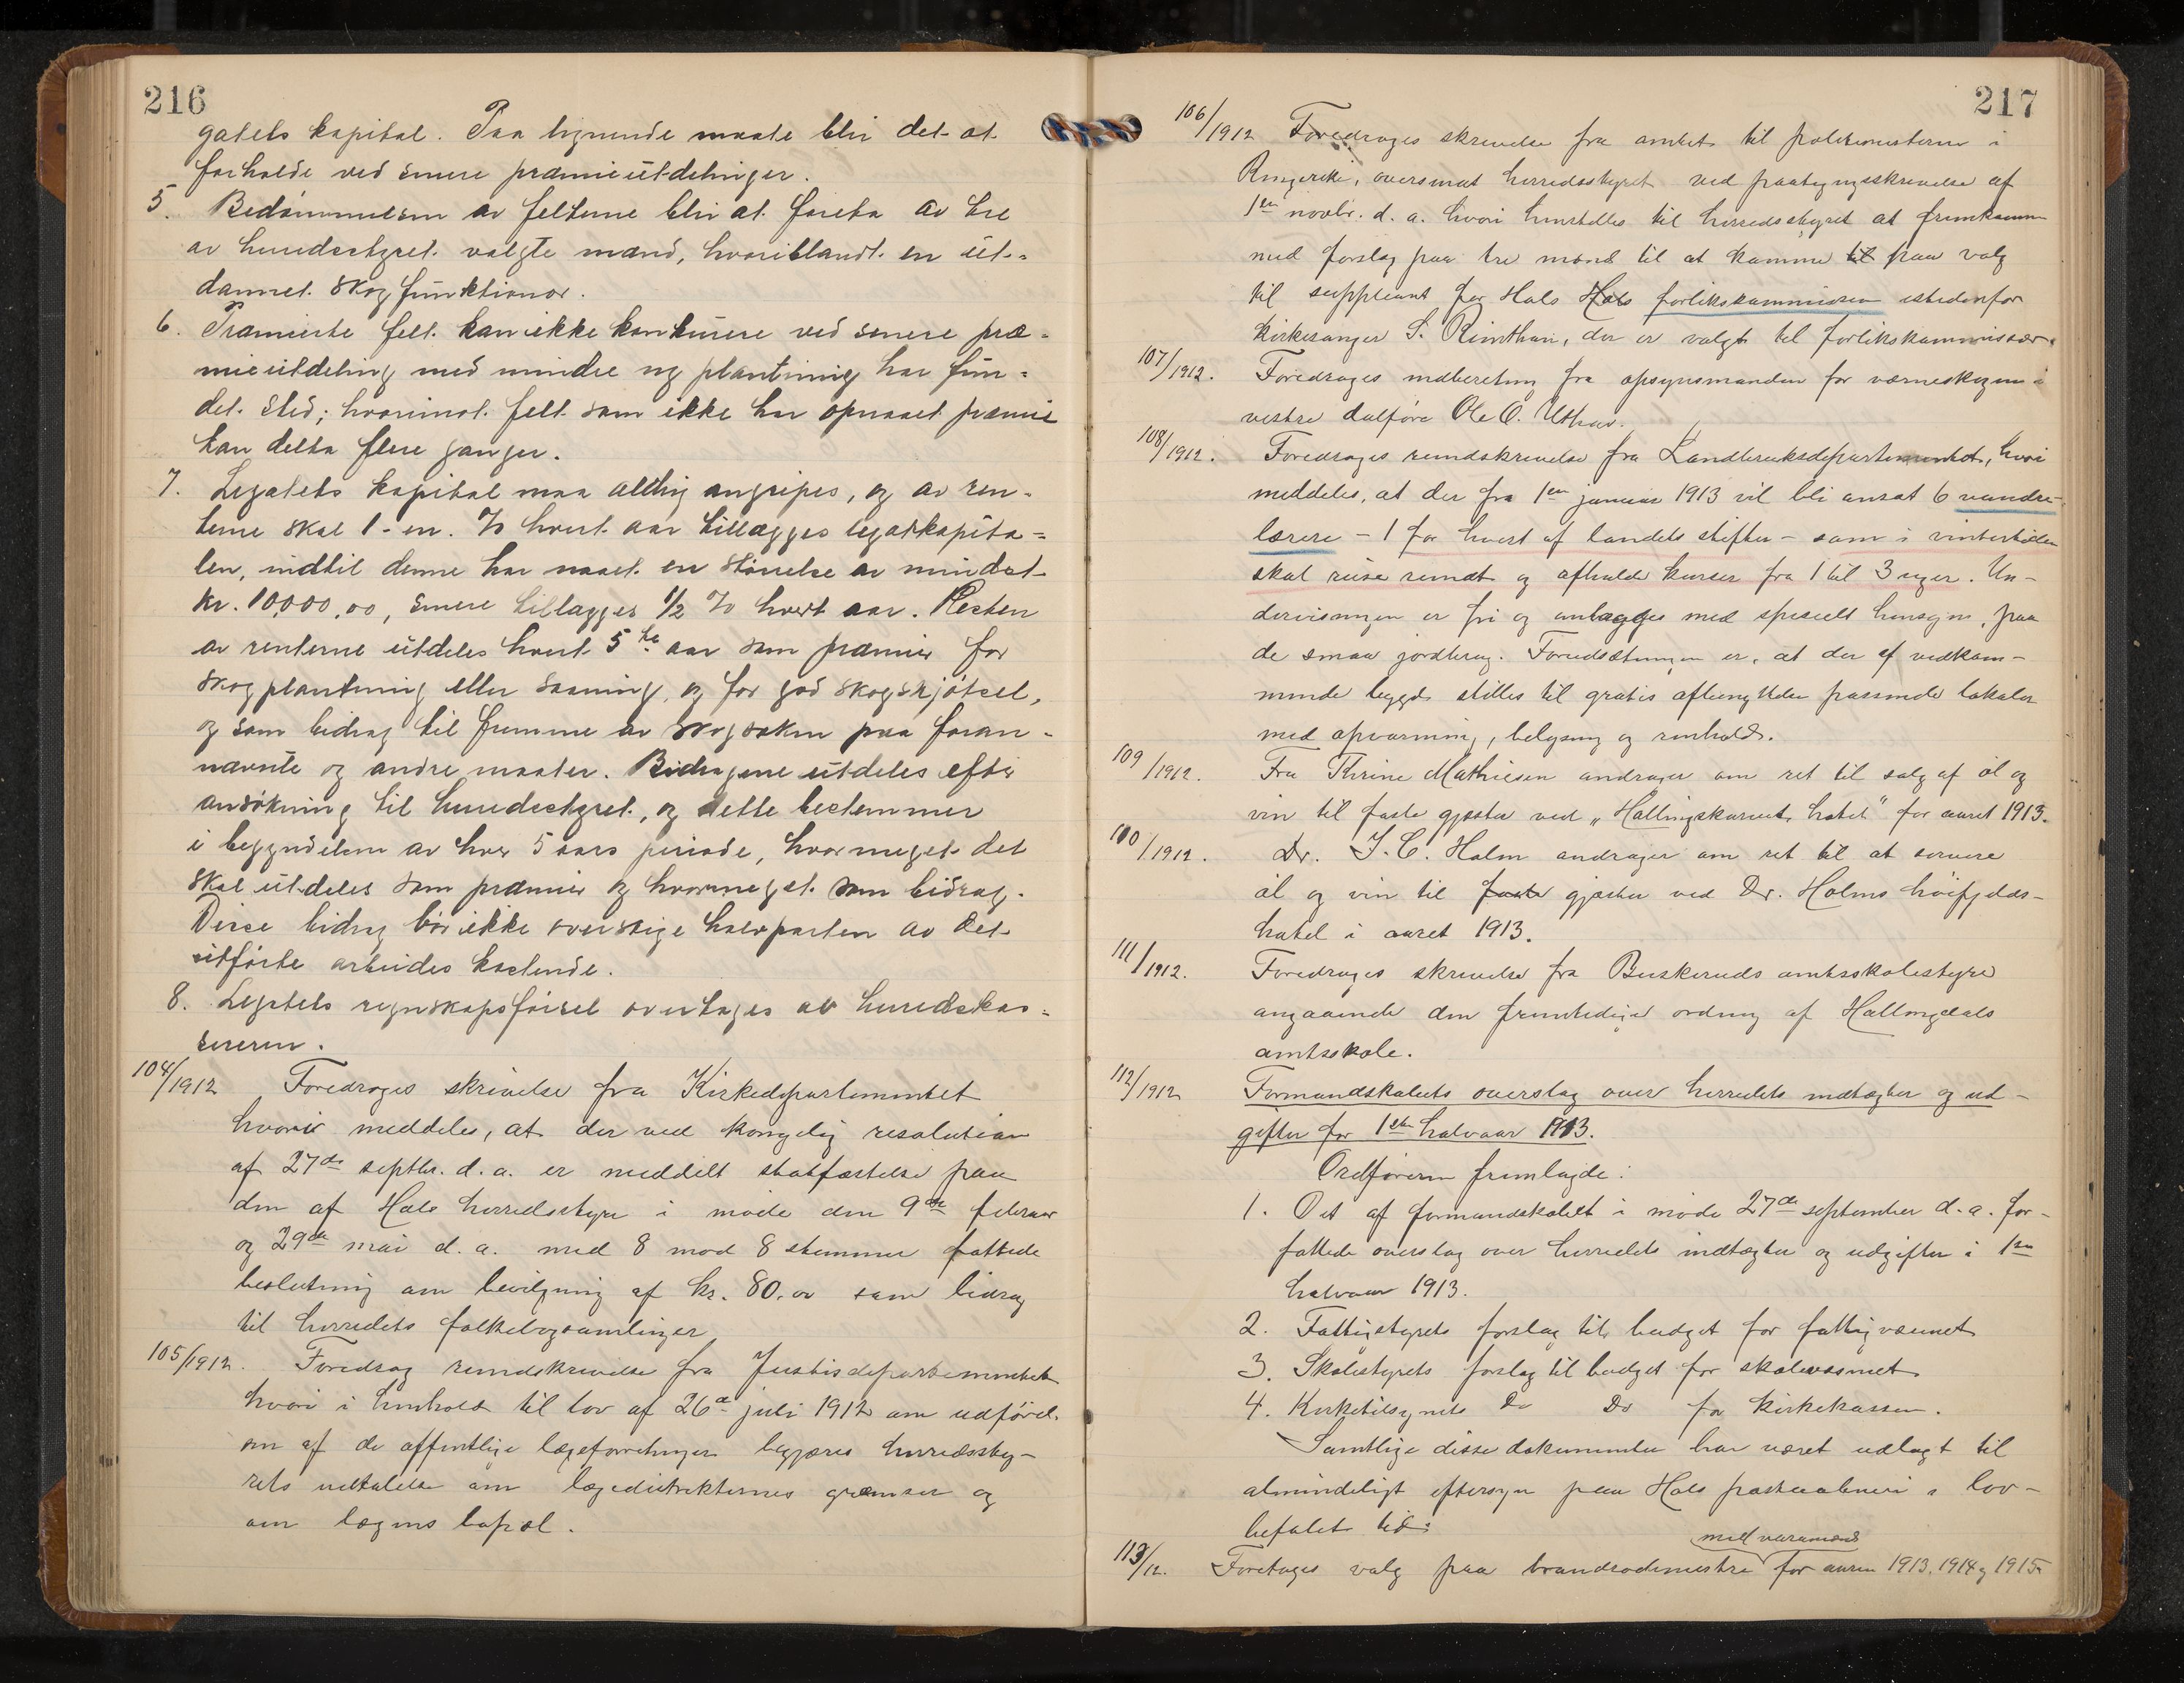 216
gatets kapital. Paa lignende maate blir det at
forholde ved senere præmieutdelinger.
5. Bedømmelsen av felterne blir at foreta av tre
av herredsstyret valgte mænd, hvoriblandt en ut-
dannet skogfunktionær.
6. Præmierte felt kan ikke konkurere ved senere præ-
mieutdeling med mindre ny plantning har fun-
det sted; hvorimot felt som ikke har opnaaet præmie
kan delta flere ganger.
7. Legatets kapital maa aldrig angripes, og av ren-
terne skal 1-en % hvert aar tillægges legatkapita-
len, indtil denne har naaet en størrelse av mindst
kr. 10,000,00, senere tillægges 1/2 % hvert aar. Resten
av renterne utdeles hvert 5te aar som præmier for
skogplantning eller saaning, og for god skogskjøtsel,
og som bidrag til fremme av skogsaken paa foran-
nævnte og andre maater. Bidragene utdeles efter
ansøkning til herredsstyret, og dette bestemmer
i begyndelsen av hver 5 aars periode, hvormeget det
skal utdeles som præmier og hvormeget som bidrag.
Disse bidrag bør ikke overstige halvparten av det
utførte arbeides kostende.
8. Legatets regnskapsførsel overtages av herredskas-
sereren.
104/1912 Foredroges skrivelse fra Kirkedepartementet
hvori meddeles, at der ved kongelig resolution
af 27de septbr. d.a. er meddelt stadfæstelse paa
den af Hols herredsstyre i møde den 9de februar
og 29de mai d.a. med 8 mod 8 stemmer fattede
beslutning om bevilgning af kr. 80.00 som bidrag
til herredets folkebogsamlinger
105/1912. Foredrog rundskrivelse fra Justisdepartementet
hvori i henhold til lov af 26de juli 1912 om udførel-
sen af de offentlige lægeforretninger begjæres herredssty-
rets udtalelse om lægedistrikternes grænser og
om lægens bopæl.
217
106/1912 Foredroges skrivelse fra amtet til politimesteren i
Ringerike, oversendt herredsstyret ved paategningsskrivelse af
1ste novbr. d.a. hvori henstilles til herredsstyret at fremkomme
med forslag paa tre mænd til at komme til paa valg
til suppleant for Hols Hols forlikskommission istedenfor
kirkesanger S. , der er valgt til forlikskommissær.
107/1912. Foredroges indberetning fra opsynsmanden for værneskogen i
vestre dalføre Ole O. .
108/1912. Foredroges rundskrivelse fra Landbruksdepartementet, hvori
meddeles, at der fra 1ste januar 1913 vil bli ansat 6 vandre-
lærere - 1 for hvert af landets stifter - som i vintertiden
skal reise rundt og afholde kurser fra 1 til 3 uger. Un-
dervisningen er fri og anlægges med specielt hensyn paa
de smaa jordbrug. Forudsætningen er, at der af vedkom-
mende bygd stilles til gratis afbenyttelse passende lokaler
med opvarming, belysning og renhold.
109/1912. Fru Thrine Mathiesen andrager om ret til salg af øl og
vin til faste gjæster ved "Hallingskarvets hotel" for aaret 1913.
100/1912. Dr. I.C. Holm andrager om ret til at servere
øl og vin til faste gjæster ved Dr. Holms høifjelds-
hotel i aaret 1913.
111/1912. Foredroges skrivelse fra Buskeruds amtsskolestyre
angaaende den fremtidige ordning af Hallingdals
amtsskole.
112/1912 Formandskabets overslag over herredets indtægter og ud-
gifter for 1ste halvaar 1913.
Ordføreren fremlagde:
1. Det af formandskabet i møde 27de september d.a. for-
fattede overslag over herredets indtægter og udgifter i 1ste
halvaar 1913.
2. Fattigstyrets forslag til budget for fattigvæsenet
3. Skolestyrets forslag til budget for skolevæsenet
4. Kirketilsynets Do Do for kirkekassen.
Samtlige disse dokumenter har været udlagt til
almindeligt eftersyn paa Hols postaabneri i lov-
befalet tid.
med varamænd
113/12. Foretages valg paa brandrodemestre for aaren 1913, 1914 og 1915